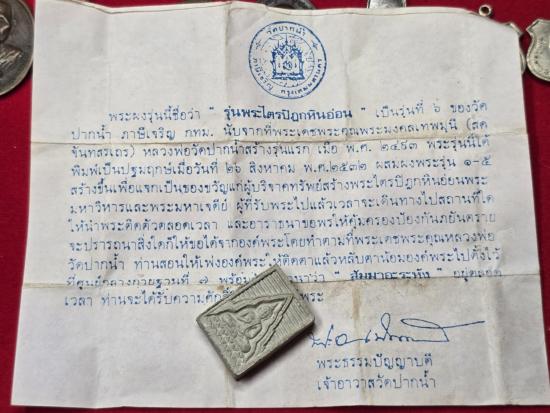 วัดปากน้ำ
ภาษีเจริญ กรุงเทพมหานคร
พระผงรุ่นนี้ชื่อว่า " รุ่นพระไตรปิฎกหินอ่อน " เป็นรุ่นที่ ๖ ของวัด
ปากน้ำ ภาษีเจริญ กทม. นับจากที่พระเดชพระคุณพระมงคลเทพมุนี (สด
จันทสรเถร) หลวงพ่อวัดปากน้ำสร้างรุ่นแรก เมื่อ พ.ศ. ๒๔๙๓ พระรุ่นนี้ได้
พิมพ์เป็นปฐมฤกษ์เมื่อวันที่ ๒๖ สิงหาคม พ.ศ.๒๕๓๒ ผสมผงพระรุ่น ๑-๕
สร้างขึ้นเพื่อแจกเป็นของขวัญแก่ผู้บริจาคทรัพย์สร้างพระไตรปิฎกหินอ่อนพระ
มหาวิหารและพระมหาเจดีย์ ผู้ที่รับพระไปแล้วเวลาจะเดินทางไปสถานที่ใด
ให้นำพระติดตัวตลอดเวลา และอาราธนาขอพรให้คุ้มครองป้องกันภยันตราย
จะปรารถนาสิ่งใดก็ให้ขอได้จากองค์พระโดยทำตามที่พระเดชพระคุณหลวงพ่อ
วัดปากน้ำ ท่านสอนให้เพ่งองค์พระให้ติดตาแล้วหลับตาน้อมองค์พระไปตั้งไว้
ที่ศูนย์กลางกายฐานที่ ๗ พร้อม ว่า " สัมมาอะระหัง " อยู่ตลอด
เวลา ท่านจะได้รับความศักดิ์ พระ
พระธรรมปัญญาบดี
เจ้าอาวาสวัดปากน้ำ